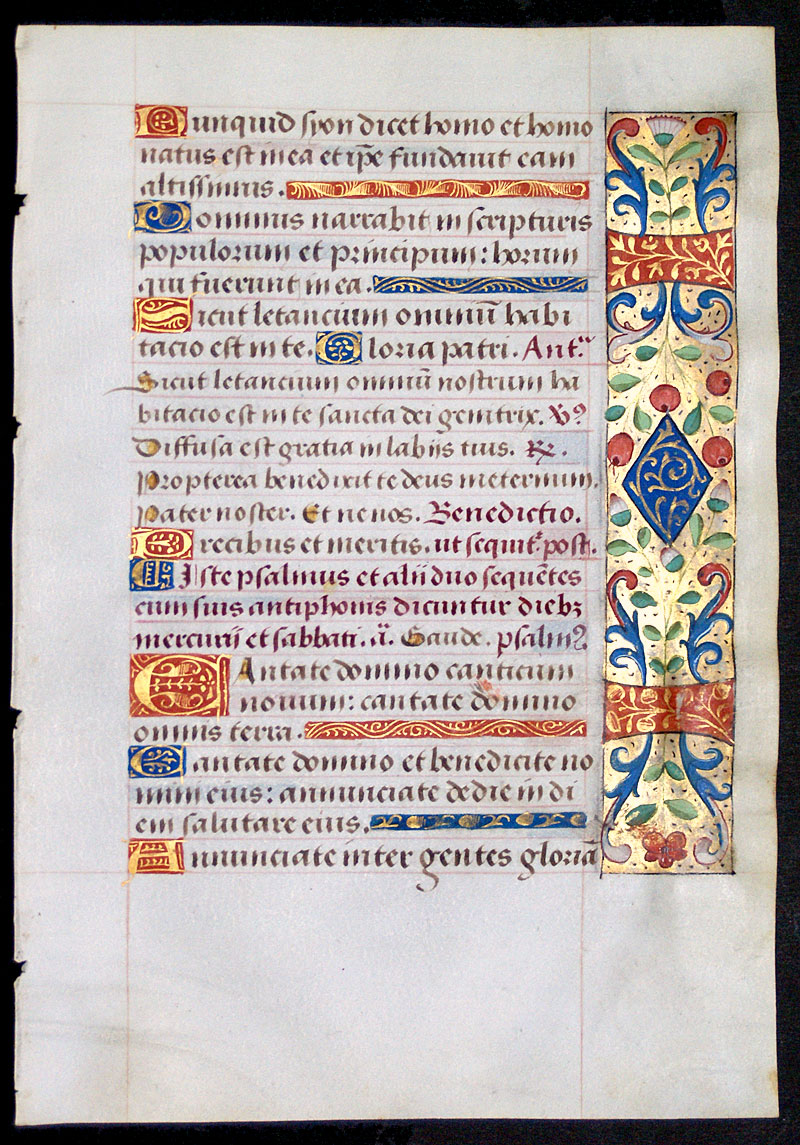 Nunquid syon dicet homo et homo
natus est in ea et ip̄e fundavit eam
altissimus.
Dominus narrabit in scripturis
populorum et principum: horum
qui fuerunt in ea.
Sicut letancium omniū habi
tacio est in te. Gloria patri. Ant.ᵃ
Sicut letancium omniū nostrum ha
bitacio est in te sancta dei genitrix. V̷?
Diffusa est gratia in labijs tuis. R̷.
Propterea benedixit te deus in eternum.
Pater noster. Et ne nos. Benedictio.
Precibus et meritis. ut sequit᷑ post.
Iste psalmus et alij duo sequētes
cum suis antiphonis dicuntur diebꜣ
mercurij et sabbati. a͂. Gaude. psalm?
Cantate domino canticum
novum: cantate domino
omnis terra.
Cantate domino et benedicite no
mini eius: annunciate de die in di
em salutare eius.
Annunciate inter gentes gloriā